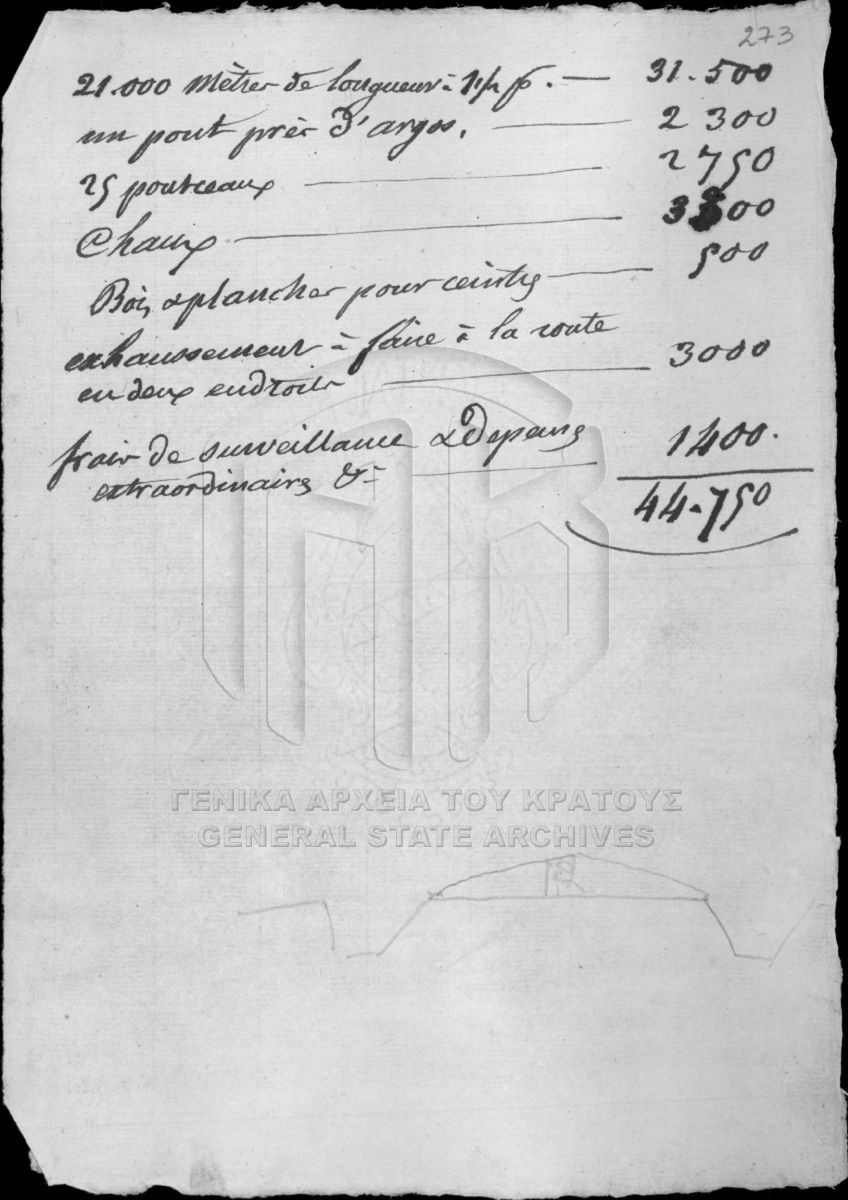 273
21.000 Mètres de longueur à 1 1/2 p. — 31.500
un pont près d'argos. — 2 300
25 pontceaux — 2 750
Chaux — 3300
Bois & plancher pour ceintres — 500
exhaussement à faire à la route
en deux endroits — 3000
frais de surveillance & depenses
extraordinaires &a — 1400.
44.750
ΓΕΝΙΚΑ ΑΡΧΕΙΑ ΤΟΥ ΚΡΑΤΟΥΣ
GENERAL STATE ARCHIVES